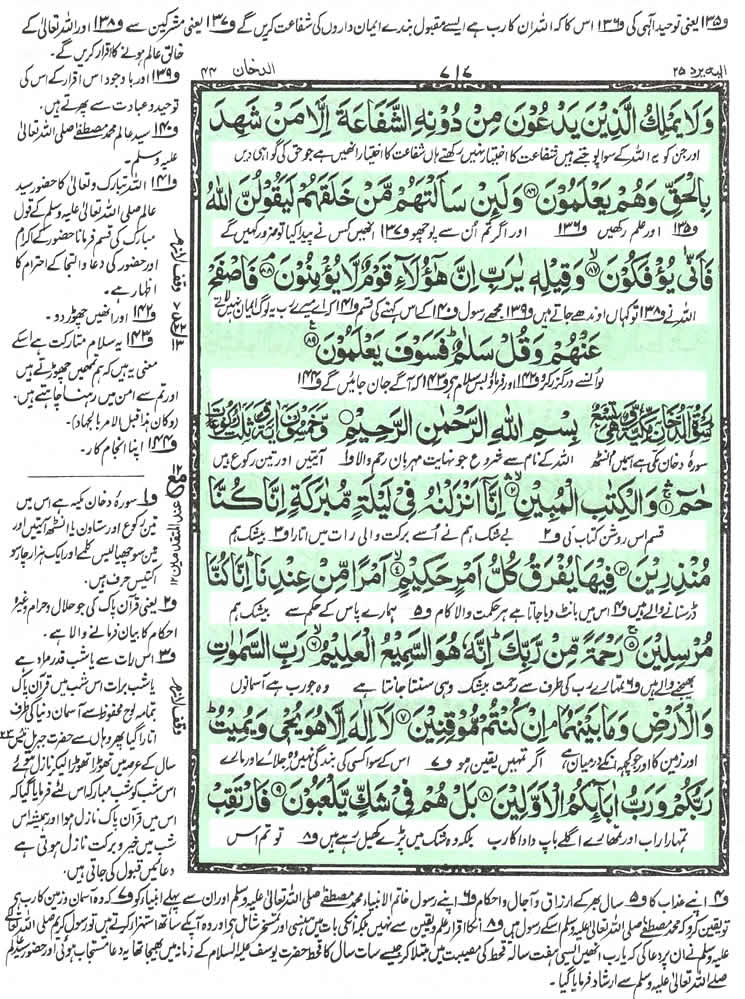 ف۱۳۵ یعنی توحید الٰہی کی ف۱۳۶ اس کا کہ اللہ ان کا رب ہے ایسے مقبول بندے ایمان داروں کی شفاعت کریں گے ف۱۳۷ یعنی مشرکین سے ف۱۳۸ اور اللہ تعالیٰ کے
خالق عالم ہونے کا اقرار کریں گے۔
الیہ یرد ۲۵
۷۱۷
الدخان ۴۴
وَلَا يَمْلِكُ الَّذِينَ يَدْعُونَ مِنْ دُونِهِ الشَّفَاعَةَ إِلَّا مَنْ شَهِدَ
اور جن کو یہ اللہ کے سوا پوجتے ہیں شفاعت کا اختیار نہیں رکھتے ہاں شفاعت کا اختیار انھیں ہے جو حق کی گواہی دیں
بِالْحَقِّ وَهُمْ يَعْلَمُونَ ۝۸۶ وَلَئِنْ سَأَلْتَهُمْ مَّنْ خَلَقَهُمْ لَيَقُولُنَّ اللَّهُ
ف۱۳۵ اور علم رکھیں ف۱۳۶ اور اگر تم اُن سے پوچھو ف۱۳۷ انھیں کس نے پیدا کیا تو ضرور کہیں گے
فَأَنَّىٰ يُؤْفَكُونَ ۝۸۷ وَقِيلِهِ يٰرَبِّ إِنَّ هٰؤُلَاءِ قَوْمٌ لَّا يُؤْمِنُونَ ۝۸۸ فَاصْفَحْ
اللہ نے ف۱۳۸ تو کہاں اوندھے جاتے ہیں ف۱۳۹ مجھے رسول ف۱۴۰ کے اس کہنے کی قسم ف۱۴۱ کہ اے میرے رب یہ لوگ ایمان نہیں لاتے
عَنْهُمْ وَقُلْ سَلٰمٌ ۖ فَسَوْفَ يَعْلَمُونَ ۝۸۹
تو ان سے درگزر کرو ف۱۴۲ اور فرماؤ بس سلام ہے ف۱۴۳ کہ آگے جان جائیں گے ف۱۴۴
سورۃ الدخان مکیۃ وھی تسع بِسْمِ اللَّهِ الرَّحْمٰنِ الرَّحِيمِ وخمسون اٰیۃ وثلث رکوعات
سورۂ دخان مکی ہے اس میں انسٹھ اللہ کے نام سے شروع جو نہایت مہربان رحم والا ف۱ آیتیں اور تین رکوع ہیں
حٰمٓ ۝۱ وَالْكِتٰبِ الْمُبِينِ ۝۲ إِنَّا أَنْزَلْنٰهُ فِي لَيْلَةٍ مُّبٰرَكَةٍ إِنَّا كُنَّا
قسم اس روشن کتاب کی ف۲ بے شک ہم نے اُسے برکت والی رات میں اتارا ف۳ بیشک ہم
مُنْذِرِينَ ۝۳ فِيهَا يُفْرَقُ كُلُّ أَمْرٍ حَكِيمٍ ۝۴ أَمْرًا مِّنْ عِنْدِنَا إِنَّا كُنَّا
ڈر سنانے والے ہیں ف۴ اس میں بانٹ دیا جاتا ہے ہر حکمت والا کام ف۵ ہمارے پاس کے حکم سے بیشک ہم
مُرْسِلِينَ ۝۵ رَحْمَةً مِّنْ رَّبِّكَ إِنَّهُ هُوَ السَّمِيعُ الْعَلِيمُ ۝۶ رَبِّ السَّمٰوٰتِ
بھیجنے والے ہیں ف۶ تمہارے رب کی طرف سے رحمت بیشک وہی سنتا جانتا ہے وہ جو رب ہے آسمانوں
وَالْأَرْضِ وَمَا بَيْنَهُمَا إِنْ كُنْتُمْ مُّوقِنِينَ ۝۷ لَا إِلٰهَ إِلَّا هُوَ يُحْيِي وَيُمِيتُ
اور زمین کا اور جو کچھ انکے درمیان ہے اگر تمہیں یقین ہو ف۷ اس کے سوا کسی کی بندگی نہیں وہ جلائے اور مارے
رَبُّكُمْ وَرَبُّ اٰبَائِكُمُ الْأَوَّلِينَ ۝۸ بَلْ هُمْ فِي شَكٍّ يَّلْعَبُونَ ۝۹ فَارْتَقِبْ
تمہارا رب اور تمھارے اگلے باپ دادا کا رب بلکہ وہ شک میں پڑے کھیل رہے ہیں ف۸ تو تم اس
ف۱۳۹ اور باوجود اس اقرار کے اس کی
توحید و عبادت سے پھرتے ہیں۔
ف۱۴۰ سید عالم محمد مصطفےٰ صلی اللہ تعالیٰ
علیہ وسلم۔
ف۱۴۱ اللہ تبارک و تعالیٰ کا حضور سید
عالم صلی اللہ تعالیٰ علیہ وسلم کے قول
مبارک کی قسم فرمانا حضور کے اکرام
اور حضور کی دعا و التجا کے احترام کا
اظہار ہے۔
ف۱۴۲ اور انھیں چھوڑ دو۔
ف۱۴۳ یہ سلام متارکت ہے اسکے
معنی یہ ہیں کہ ہم تمھیں چھوڑتے ہیں
اور تم سے امن میں رہنا چاہتے ہیں۔
(وکان ھذا قبل الامر بالجہاد)۔
ف۱۴۴ اپنا انجام کار۔
ف۱ سورۂ دخان مکیہ ہے اس میں
تین رکوع اور ستاون یا انسٹھ آیتیں اور
تین سو چھیالیس کلمے اور ایک ہزار چار سو
اکتیس حرف ہیں۔
ف۲ یعنی قرآن پاک کی جو حلال و حرام وغیرہ
احکام کا بیان فرمانے والا ہے۔
ف۳ اس رات سے یا شب قدر مراد ہے
یا شب برات اس شب میں قرآن پاک
بتمامہ لوح محفوظ سے آسمان دنیا کی طرف
اتارا گیا پھر وہاں سے حضرت جبریل تیئس
سال کے عرصہ میں تھوڑا تھوڑا لیکر نازل ہوئے
اس شب کو شب مبارکہ اس لئے فرمایا گیا کہ
اس میں قرآن پاک نازل ہوا اور ہمیشہ اس
شب میں خیر و برکت نازل ہوتی ہے
دعائیں قبول کی جاتی ہیں۔
وقف لازم
وقف لازم
ف۴ اپنے عذاب کا ف۵ سال بھر کے ارزاق و آجال و احکام ف۶ اپنے رسول خاتم الانبیاء محمد مصطفےٰ صلی اللہ تعالیٰ علیہ وسلم اور ان سے پہلے انبیا کو ف۷ کہ وہ آسمان و زمین کا رب ہے
تو یقین کرو کہ محمد مصطفےٰ صلی اللہ تعالیٰ علیہ وسلم اسکے رسول ہیں ف۸ انکا اقرار علم و یقین سے نہیں بلکہ انکی بات میں ہنسی اور تمسخر شامل ہے اور وہ آپکے ساتھ استہزا کرتے ہیں تو رسول کریم صلی اللہ تعالیٰ
علیہ وسلم نے ان پر دعا کی کہ یا رب انھیں ایسی ہفت سالہ قحط کی مصیبت میں مبتلا کر جیسے سات سال کا قحط حضرت یوسف علیہ السلام کے زمانہ میں بھیجا تھا یہ دعا مستجاب ہوئی اور حضور سید عالم
صلے اللہ تعالیٰ علیہ وسلم سے ارشاد فرمایا گیا۔